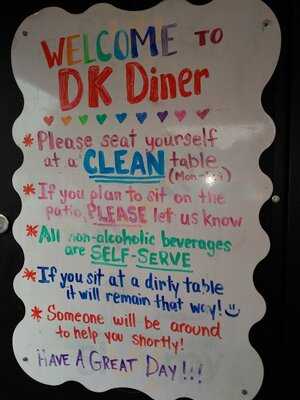 WELCOME TO
DK Diner
* Please seat yourself
at a CLEAN table
(Mon-Fri)
* If you plan to sit on the
patio, PLEASE let us know
* All non-alcoholic beverages
are SELF-SERVE
* If you sit at a dirty table
it will remain that way!
* Someone will be around
to help you shortly!
HAVE A GREAT DAY!!!